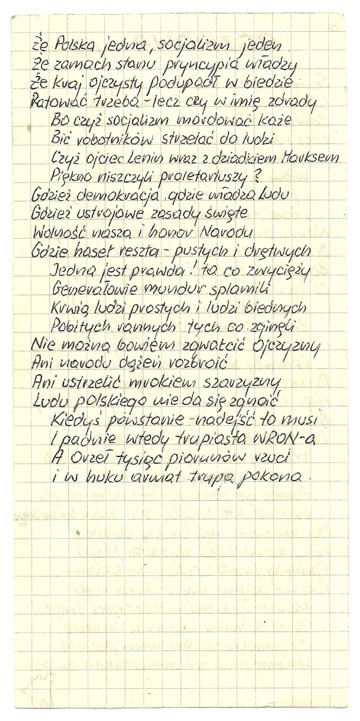 że Polska jedna, socjalizm jeden
Że zamach stanu pryncypia władzy
Że kraj ojczysty podupadł w biedzie
Ratować trzeba - lecz czy w imię zdrady
Bo czyż socjalizm mordować każe
Bić robotników strzelać do ludzi
Czyż ojciec Lenin wraz z dziadkiem Marksem
Piękno niszczyli proletariuszy?
Gdzież demokracja gdzie władza Ludu
Gdzież ustrojowe zasady święte
Wolność nasza i honor Narodu
Gdzie haseł reszta - pustych i drętwych
Jedna jest prawda! ta co zwycięży
Generałowie mundur splamili
Krwią ludzi prostych i ludzi biednych
Pobitych rannych tych co zginęli
Nie można bowiem zgwałcić Ojczyzny
Ani narodu dążeń rozbroić
Ani ustrzelić mrokiem szarzyzny
Ludu polskiego nie da się zgnoić
Kiedyś powstanie - nadejść to musi
I padnie wtedy trupiasta WRON-a
A Orzeł tysiąc piorunów rzuci
i w huku armat trupa pokona.